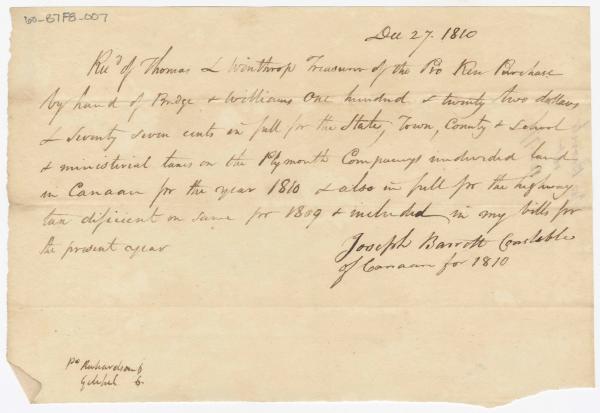 60-B7F8-007
Dec 27. 1810
Rec'd of Thomas L Winthrop Treasurer of the Pro Ken Purchase
by hand of Bridge & Williams one hundred & twenty two dollars
& Seventy seven cents in full for the State, Town, County & School
& ministerial taxes on the Plymouth Companys undivided land
in Canaan for the year 1810 & also in full for the highway
tax dificient on same for 1809 & included in my bills for
the present year
Joseph Barrett Constable
of Canaan for 1810
Richardson